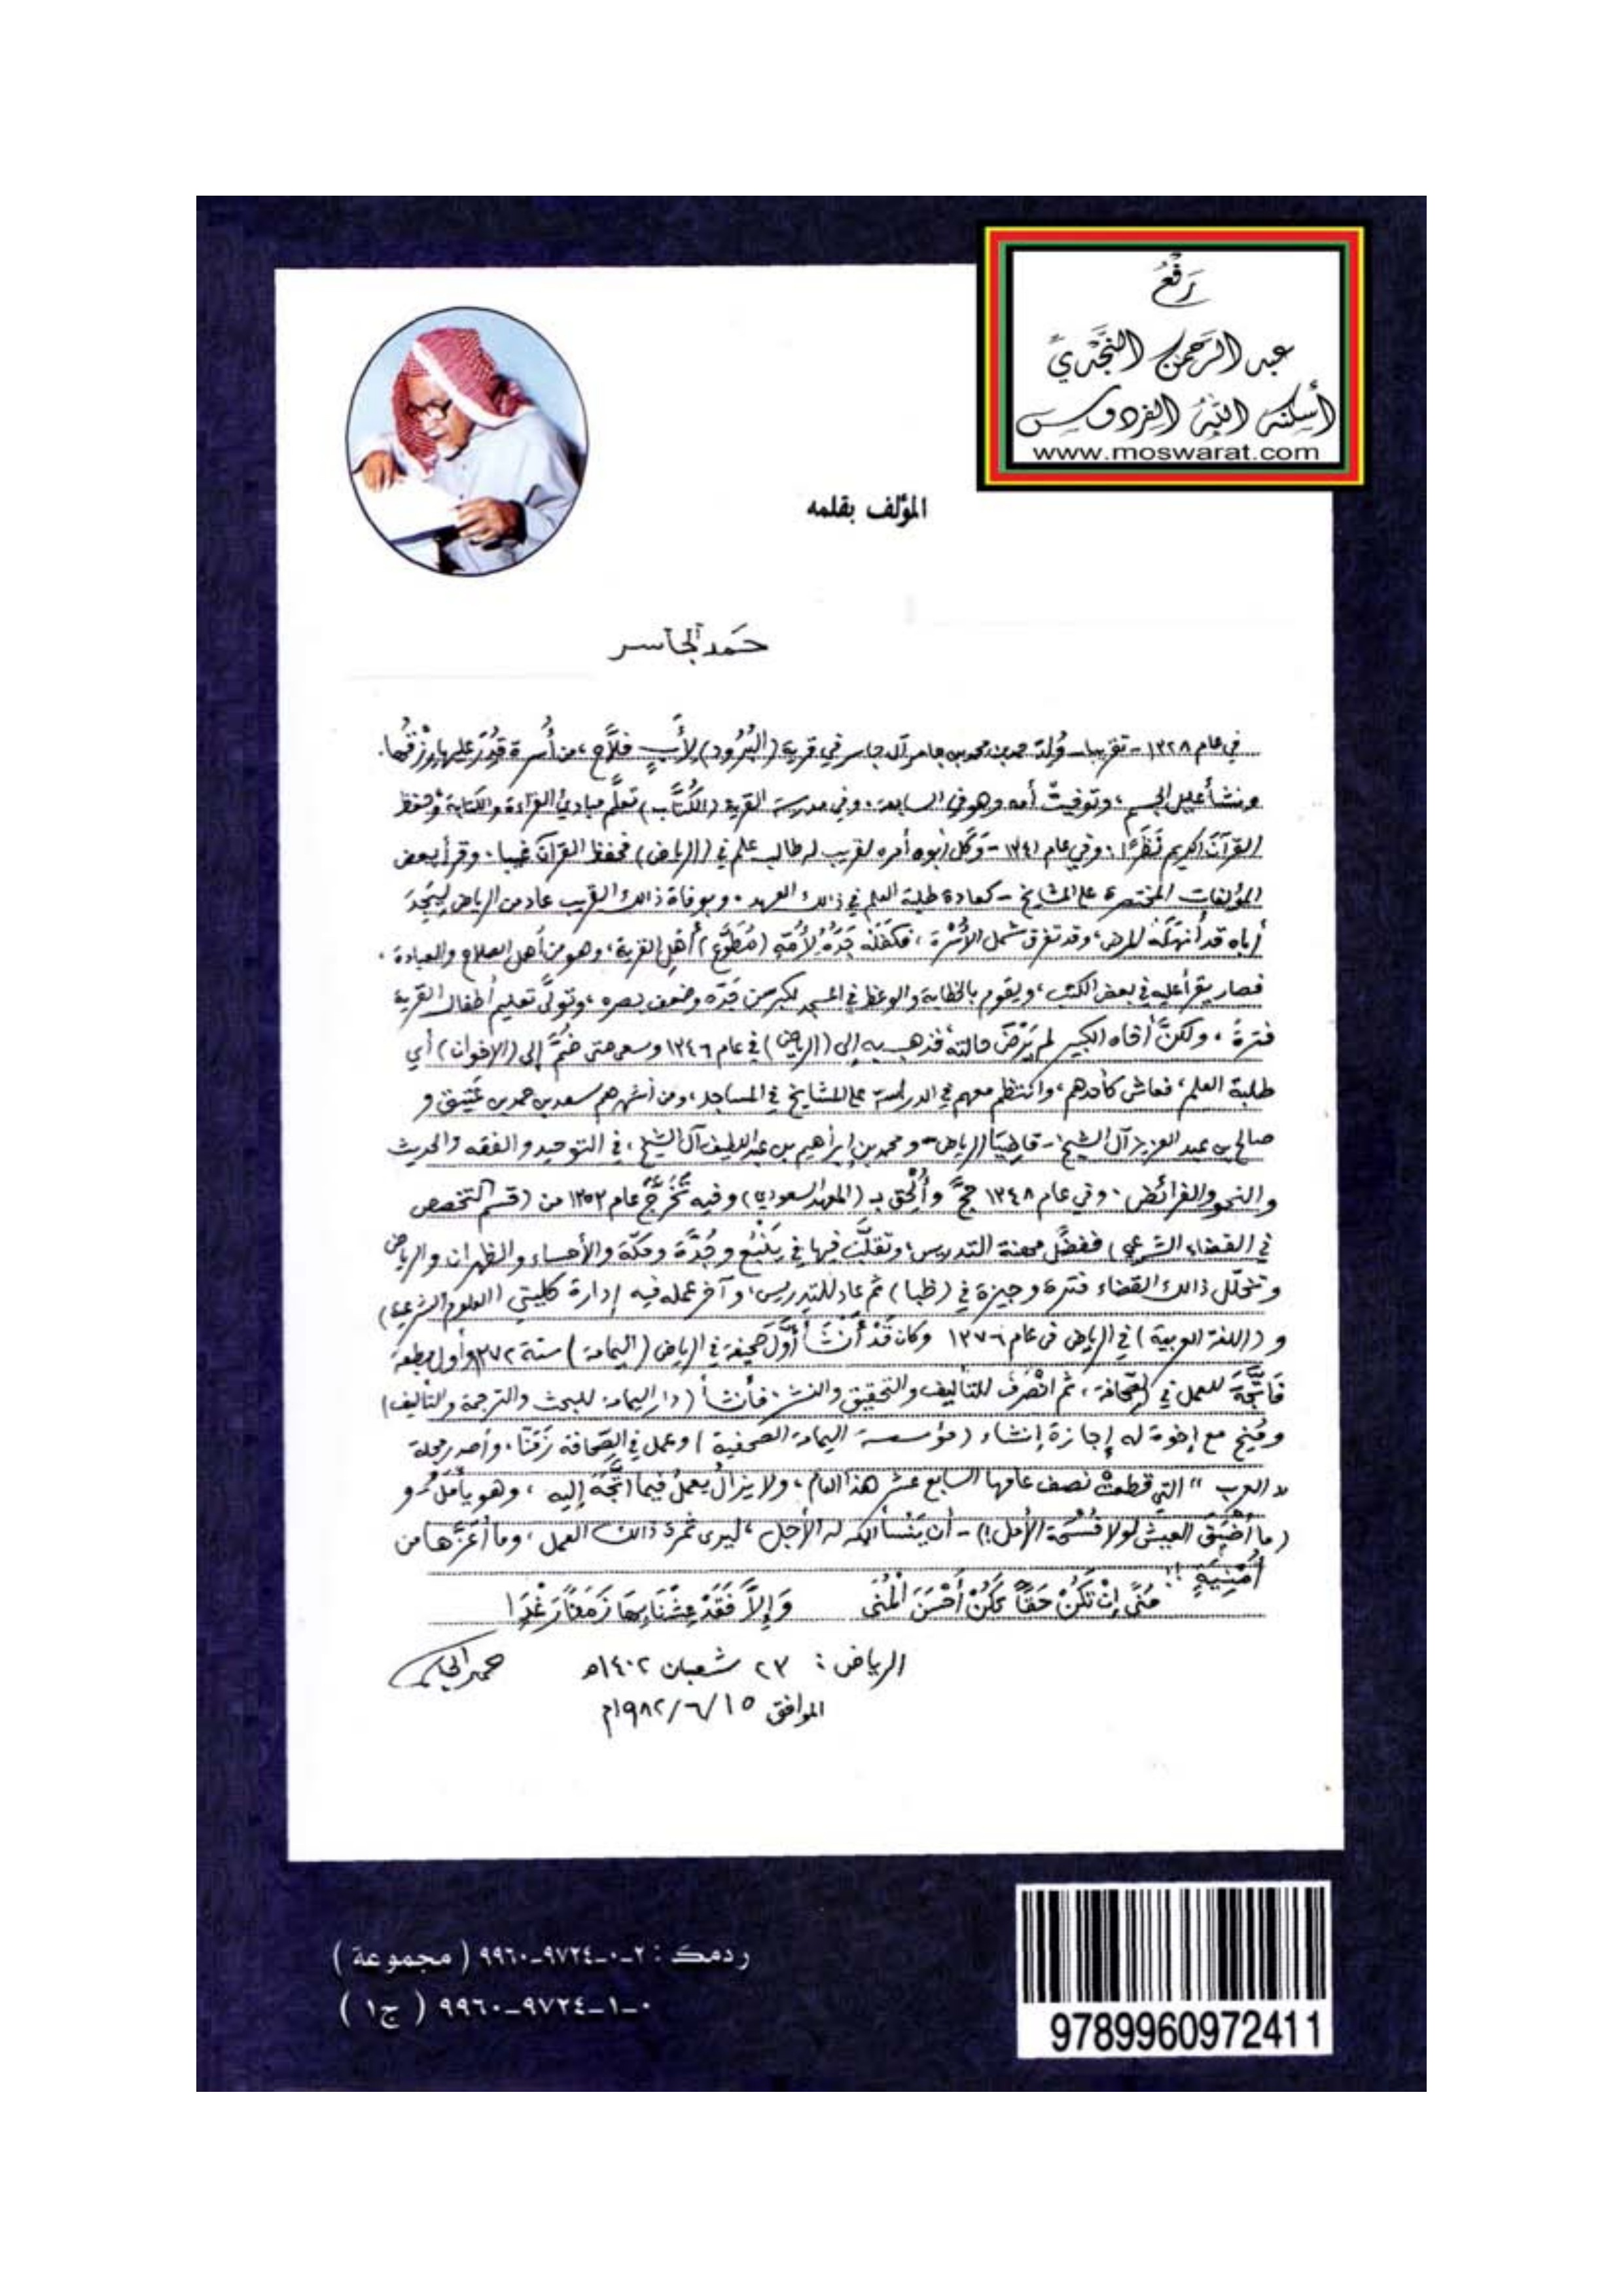 رَفْعُ
عبد الرَّحمن النَّجْدِيِّ
أسكنه اللهُ الفردوس
www.moswarat.com
المؤلف بقلمه
حَمَد الجَاسر
في عام ١٣٢٨ - تقريبا - وُلِدَ حمد بن محمد بن جاسر آل جاسر في قرية (البُرُود) لأَبٍ فلَّاحٍ، من أُسرة قُدِرَ عليها رِزْقُها.
ونشأ عليل الجسم، وتوفيتْ أمه وهو في السابعة، وفي مدرسة القرية (الكُتَّاب) تعلَّم مبادئ القراءة والكتابة، وحفظ
القرآن الكريم نَظَرًا. وفي عام ١٣٤١ - وَكَلَ أبوه أمره لقريب له طالب علم في (الرياض) فحفظ القرآن غيبا. وقرأ بعض
المؤلفات المختصرة على المشايخ - كعادة طلبة العلم في ذلك العهد. وبوفاة ذالك القريب عاد من الرياض لِيَجِدَ
أباه قد أنهكَه المرض، وقد تفرق شمل الأُسْرَة، فكفَلَه جَدُّهُ لأُمِّهِ (مُطَوَّع) أهل القرية، وهو من أهل الصلاح والعبادة.
فصار يقرأ عليه في بعض الكتب، ويقوم بالخطابة والوعظ في المسجد لكبر سن جَدِّه وضعف بصره، وتولَّى تعليم أطفال القرية
فترةً، ولكنَّ أخاه الكبير لم يَرْضَ حالته فذهب به إلى (الرياض) في عام ١٣٤٦ وسعى حتى ضُمَّ إلى (الإخوان) أي
طلبة العلم، فعاش كأحدهم، وانتظم معهم في الدراسة على المشايخ في المساجد، ومن أشهرهم سعد بن حمد بن عَتِيق و
صالح بن عبد العزيز آل الشيخ - قاضِيَا الرياض - ومحمد بن إبراهيم بن عبد اللطيف آل الشيخ، في التوحيد والفقه والحديث
والنحو والفرائض. وفي عام ١٣٤٨ حجَّ وأُلْحِق بـ (المعهد السعودي) وفيه تَخَرَّجَ عام ١٣٥٣ من (قسم التخصص
في القضاء الشرعي) ففضَّل مهنة التدريس، وتقلَّبَ فيها في يَنْبُع وجُدَّة ومكّة والأحساء والظهران والرياض
وتخلّل ذالك القضاء فترة وجيزة في (ظبا) ثم عاد للتدريس، وآخر عمله فيه إدارة كليتي (العلوم الشرعية)
و (اللغة العربية) في الرياض في عام ١٣٧٦ وكان قَدْ أَنْشَأَ أَوَّلَ صحيفة في الرياض (اليمامة) سنة ١٣٧٢ وأول مطبعة
فَاتَّجَهَ للعمل في الصحافة، ثم انْصَرفَ للتأليف والتحقيق والنشر فأنشأ (دار اليمامة للبحث والترجمة والتأليف)
ومُنِحَ مع إخوة له إجازة إنشاء (مؤسسة اليمامة الصحفية) وعمل في الصِّحافة زَمَنًا. وأصدر مجلة
"العرب" التي قطعتْ نصف عامها السابع عشر هذا العام، ولا يزالُ يعملُ فيما اتَّجَهَ إليه، وهو يأمَلُ - و
(ما أَضْيَقَ العيشَ لولا فُسْحَة الأمل!) - أن يَنْسَأ الله له الأجل، ليرى ثمرة ذالك العمل، وما أعَزَّها من
أُمْنِيَةٍ!!
مُنًى إِنْ تَكُنْ حَقًّا تَكُنْ أَحْسَنَ المُنَى وَإِلَّا فَقَدْ عِشْنَا بِهَا زَمَنًا رَغْدَا
الرياض: ٢٣ شعبان ١٤٠٢هـ حمد الجاسر
الموافق ١٥/٦/١٩٨٢م
ردمك : ٢-٠-٩٧٢٤-٩٩٦٠ ( مجموعة )
٠-١-٩٧٢٤-٩٩٦٠ ( ج١ )
9789960972411